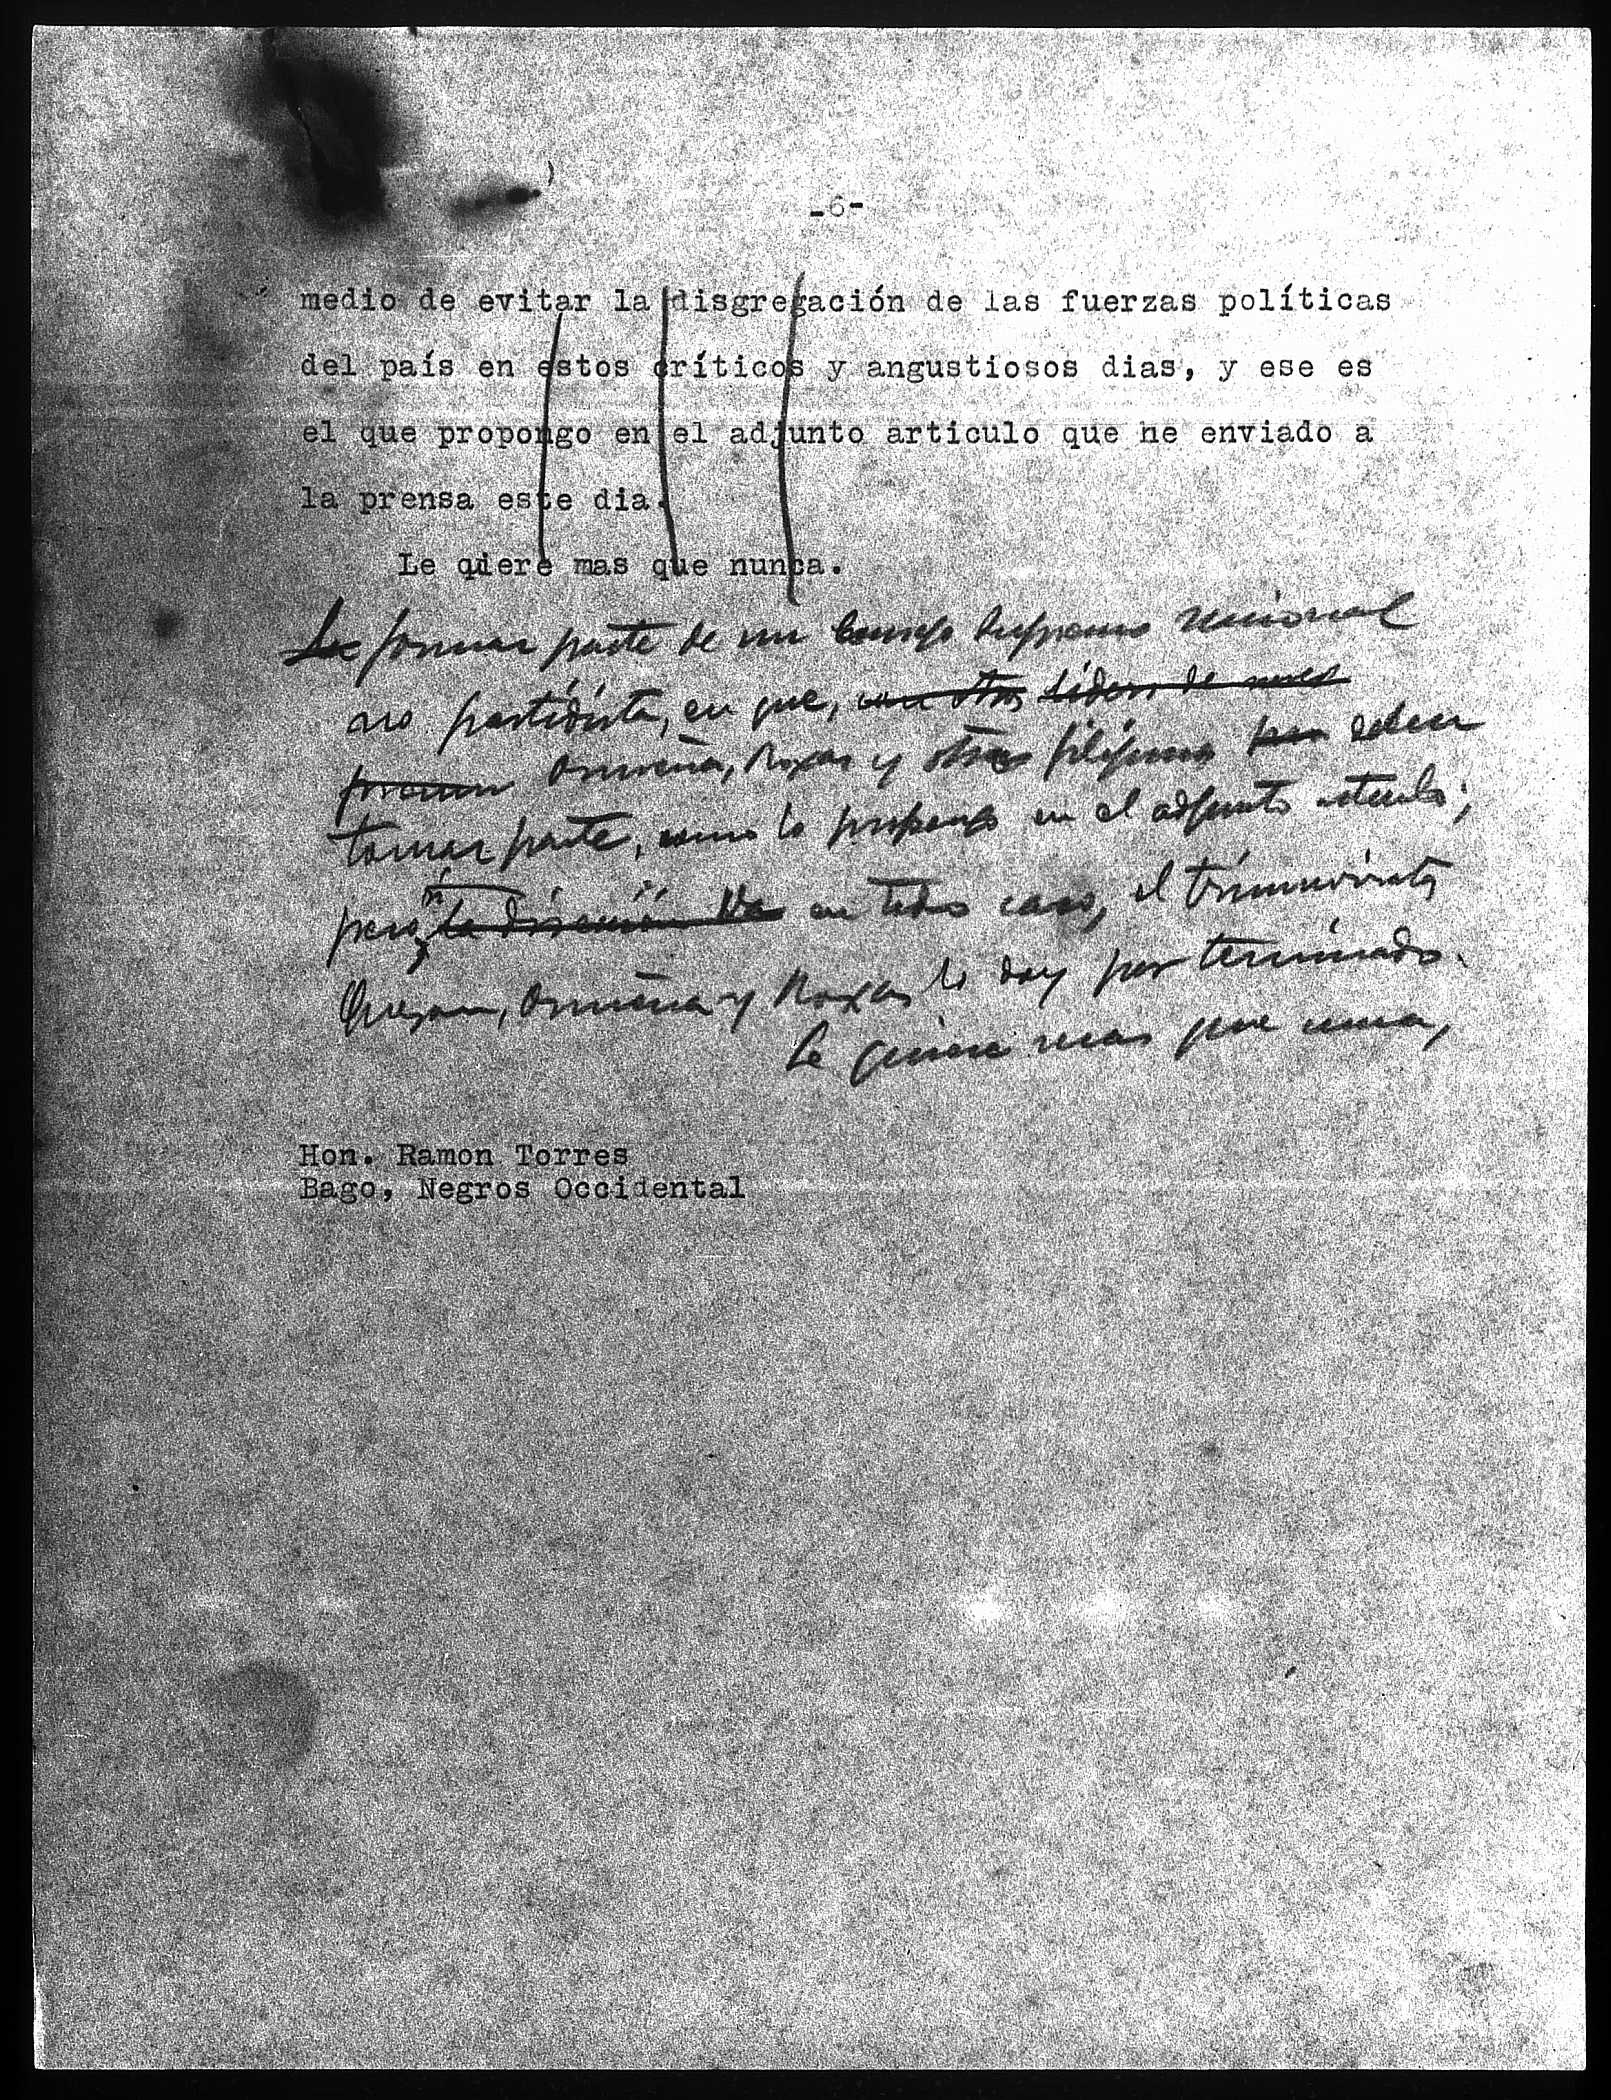 -6-
medio de evitar la disgregación de las fuerzas políticas
del país en estos críticos y angustiosos dias, y ese es
el que propongo en el adjunto articulo que he enviado a
la prensa este dia.
Le qiere mas que nunca.
formar parte de un Consejo Supremo Nacional
no partidista, en que, con otros líderes de
Osmeña, Roxas y otros filipinos deben
tomar parte, como lo propongo en el adjunto articulo;
pero, la dirección en todo caso, el triunvirato
Quezon, Osmeña y Roxas lo doy por terminado.
Le quiere mas que nunca,
Hon. Ramon Torres
Bago, Negros Occidental